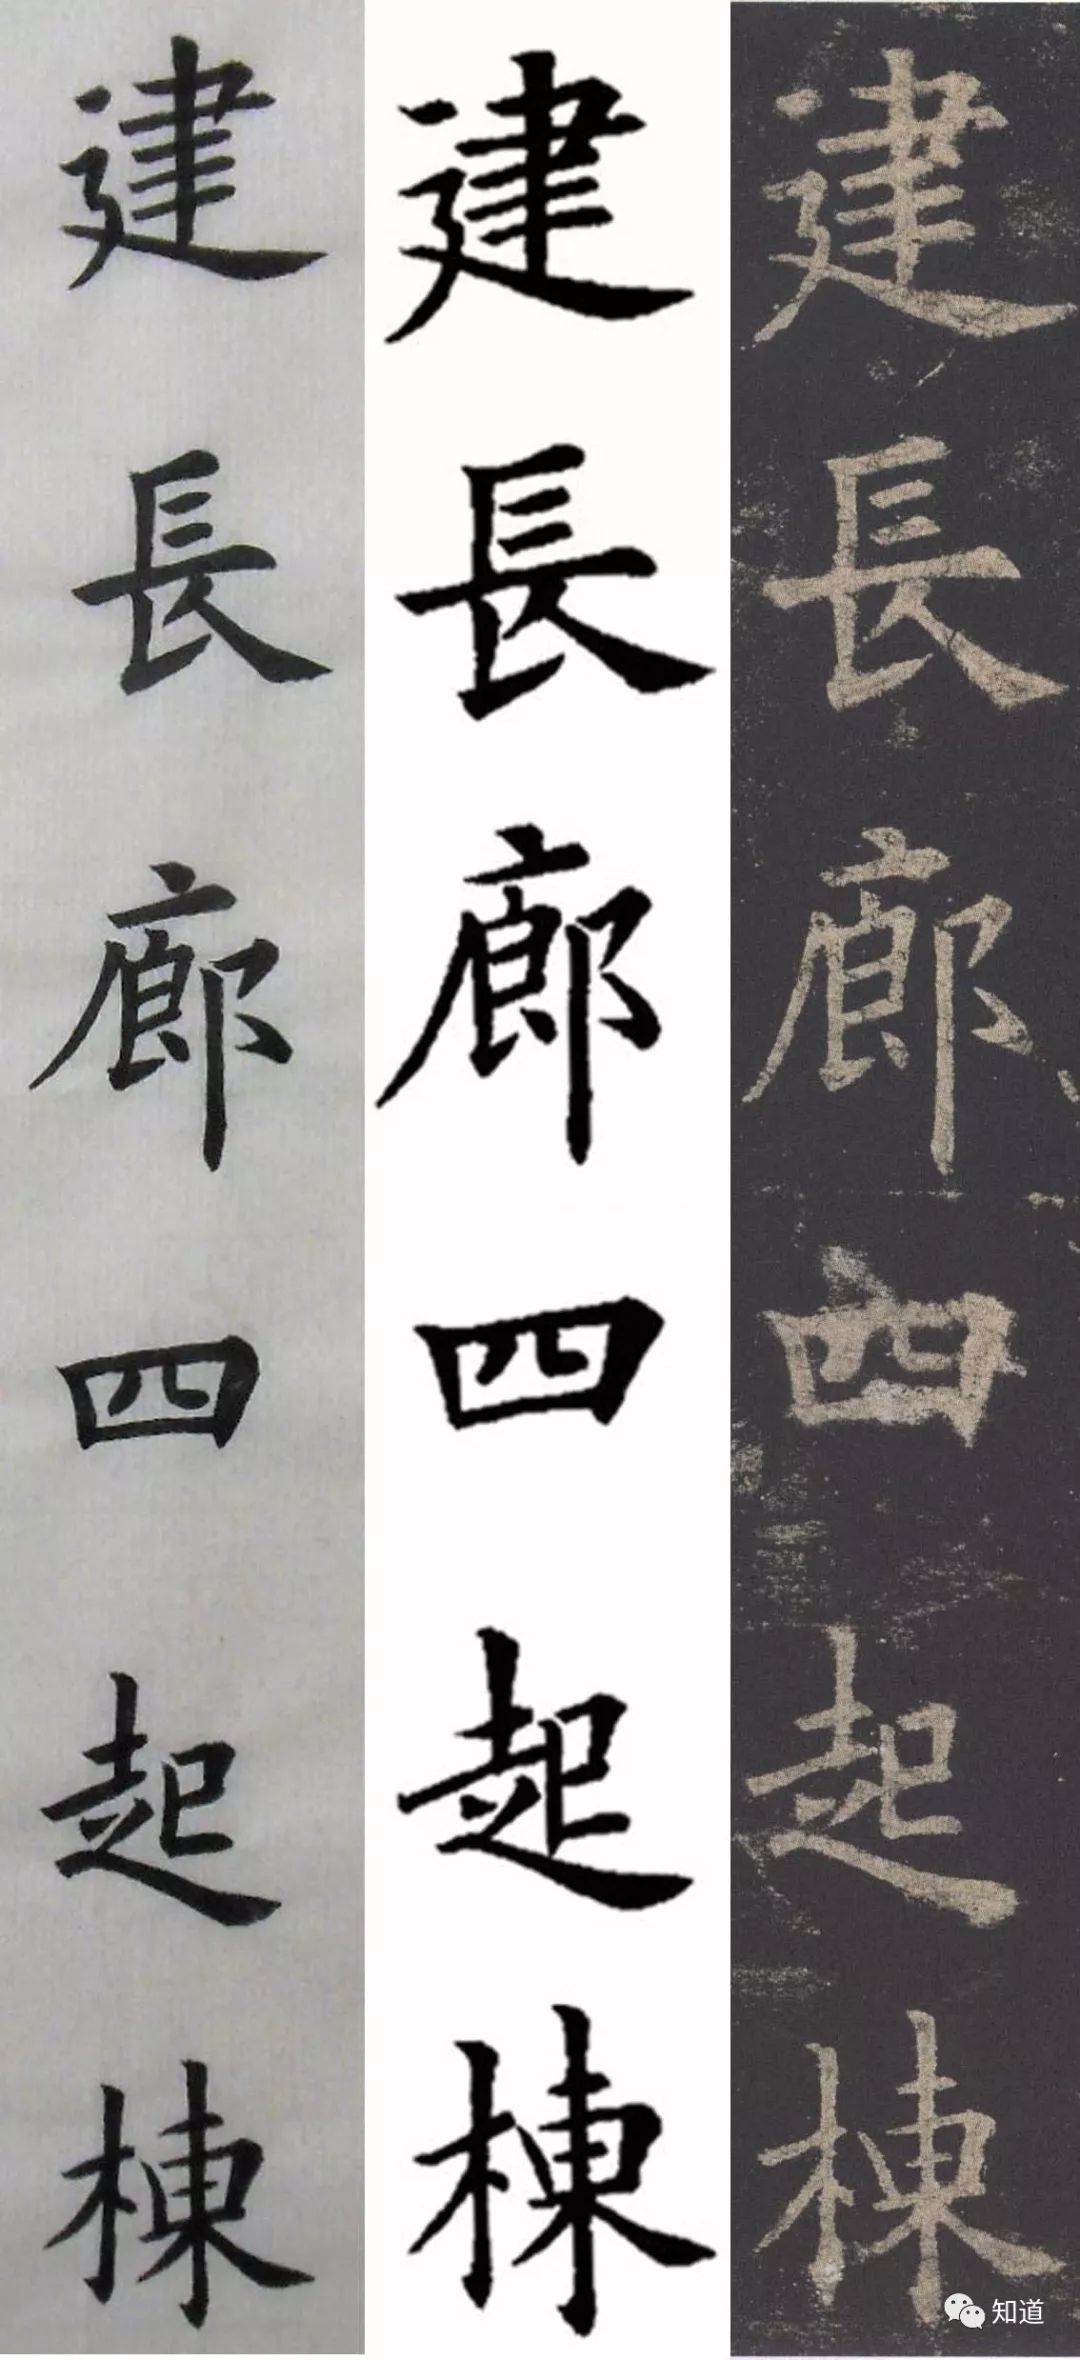 建長廊四起棟
建長廊四起棟
建長廊四起棟
知道